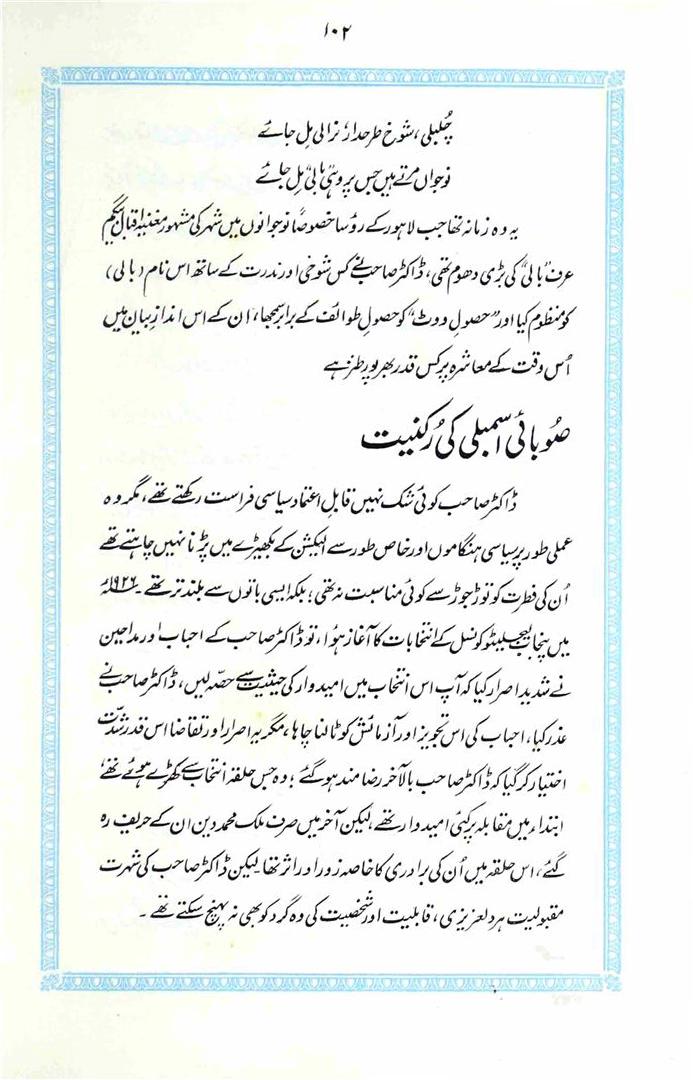 ۱۰۲
چُلبلی، شوخ طرحدار نرالی مِل جائے
نوجواں مرتے ہیں جس پر وہی بالیؔ مل جائے
یہ وہ زمانہ تھا جب لاہور کے رؤسا خصوصاً نوجوانوں میں شہر کی مشہور مغنیہ اقبال بیگم
عرف ”بالی“ کی بڑی دھوم تھی، ڈاکٹر صاحب نے کس شوخی اور ندرت کے ساتھ اس نام (بالی)
کو منظوم کیا اور ”حصولِ ووٹ“ کو حصولِ طوائف کے برابر سمجھا، ان کے اس اندازِ بیان میں
اُس وقت کے معاشرہ پر کس قدر بھرپور طنز ہے
صُوبائی اسمبلی کی رُکنیت
ڈاکٹر صاحب کوئی شک نہیں قابلِ اعتماد سیاسی فراست رکھتے تھے، مگر وہ
عملی طور پر سیاسی ہنگاموں اور خاص طور سے الیکشن کے بکھیڑے میں پڑنا نہیں چاہتے تھے
اُن کی فطرت کو توڑ جوڑ سے کوئی مناسبت نہ تھی؛ بلکہ ایسی باتوں سے بلند تر تھے۔ ۱۹۲۶ء
میں پنجاب لیجسلیٹو کونسل کے انتخابات کا آغاز ہُوا، تو ڈاکٹر صاحب کے احباب اور مداحین
نے شدید اصرار کیا کہ آپ اس انتخاب میں امیدوار کی حیثیت سے حصّہ لیں، ڈاکٹر صاحب نے
عذر کیا، احباب کی اس تجویز اور آزمائش کو ٹالنا چاہا، مگر یہ اصرار اور تقاضا اس قدر شدّت
اختیار کر گیا کہ ڈاکٹر صاحب بالآخر رضامند ہو گئے؛ وہ جس حلقۂ انتخاب سے کھڑے ہوئے تھے
ابتداء میں مقابلہ پر کئی امیدوار تھے، لیکن آخر میں صرف ملک محمد دین ان کے حریف رہ
گئے، اس حلقہ میں اُن کی برادری کا خاصہ زور اور اثر تھا لیکن ڈاکٹر صاحب کی شہرت
مقبولیت ہردلعزیزی، قابلیت اور شخصیت کی وہ گرد کو بھی نہ پہنچ سکتے تھے۔